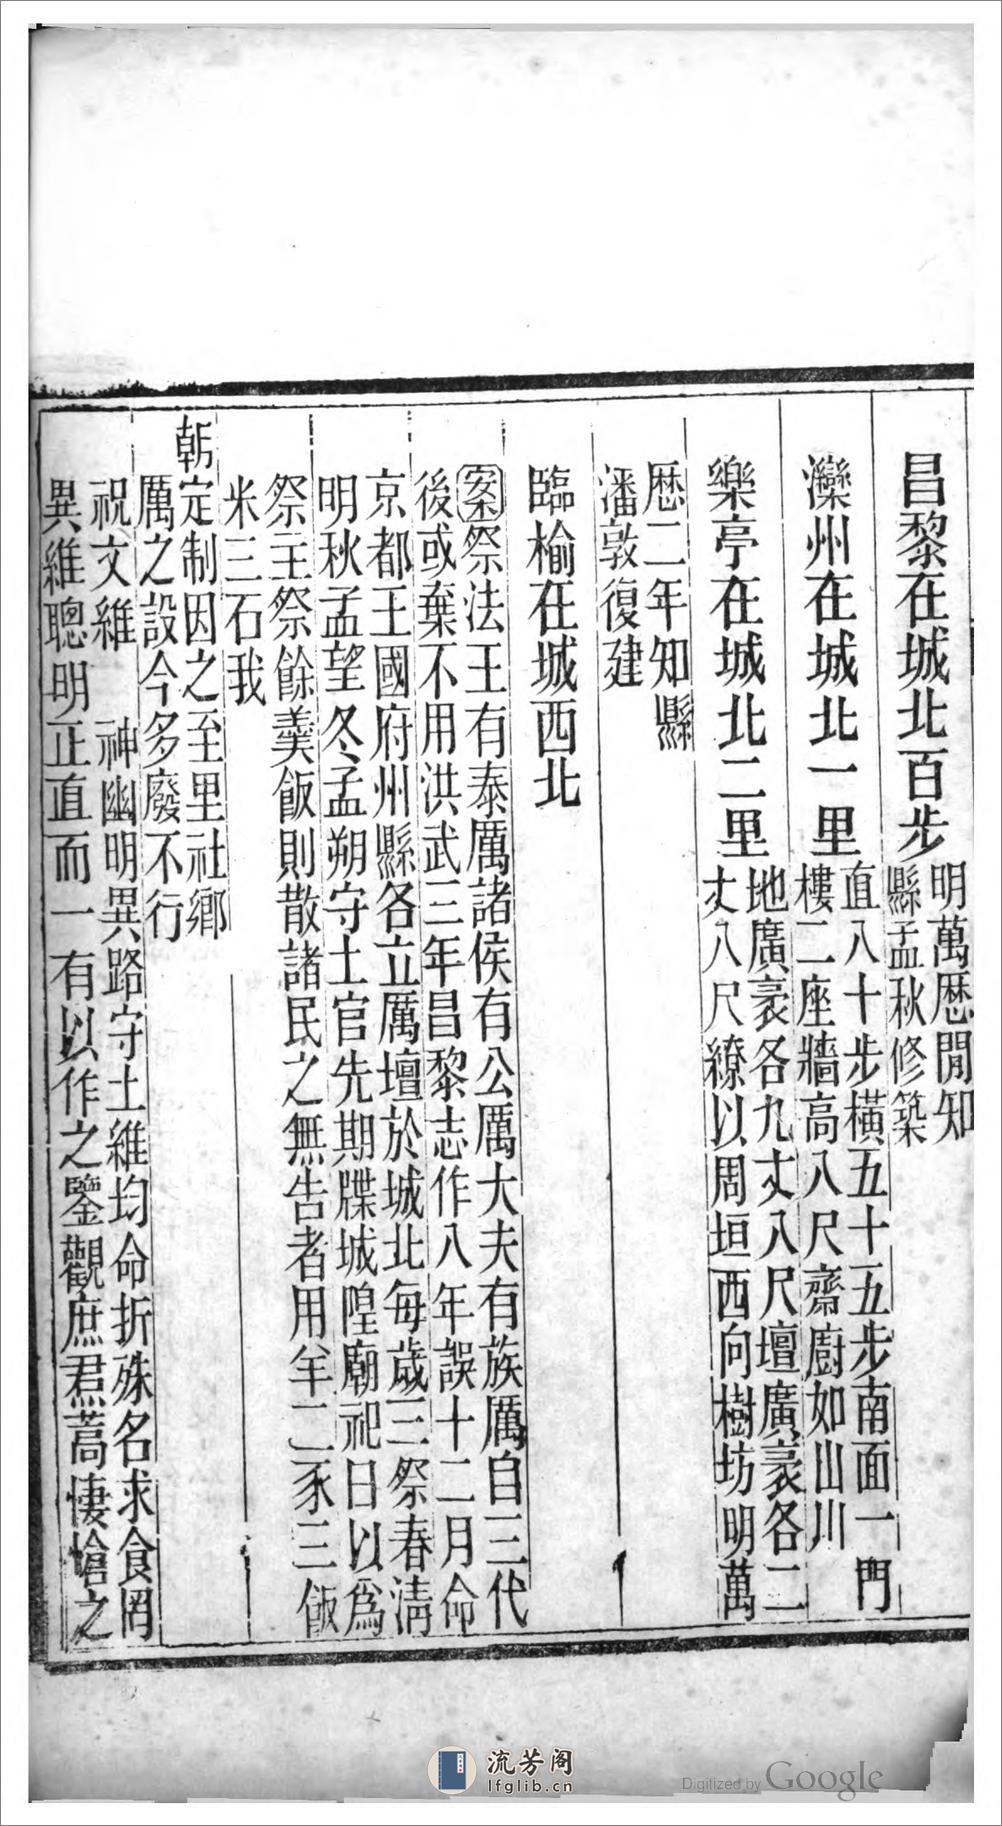 昌黎在城北百步
明萬厯閒知
縣孟秋修築
灤州在城北一里
直八十步橫五十五步南面一門
樓二座牆高八尺齋廚如山川
樂亭在城北二里
地廣袤各九丈八尺壇廣袤各二
丈八尺繚以周垣西向樹坊明萬
厯二年知縣
潘敦復建
臨榆在城西北
案祭法王有泰厲諸侯有公厲大夫有族厲自三代
後或棄不用洪武三年昌黎志作八年誤十二月命
京都王國府州縣各立厲壇於城北每歲三祭春淸
明秋孟望冬孟朔守土官先期牒城隍廟祀日以爲
祭主祭餘羹飯則散諸民之無告者用羊二豕三飯
米三石我
朝定制因之至里社鄉
厲之設今多廢不行
祝文維 神幽明異路守土維均命折殊名求食罔
異維聰明正直而一有以作之鑒觀庶焄蒿悽愴之
流芳阁
lfglib.cn
Digitized by Google